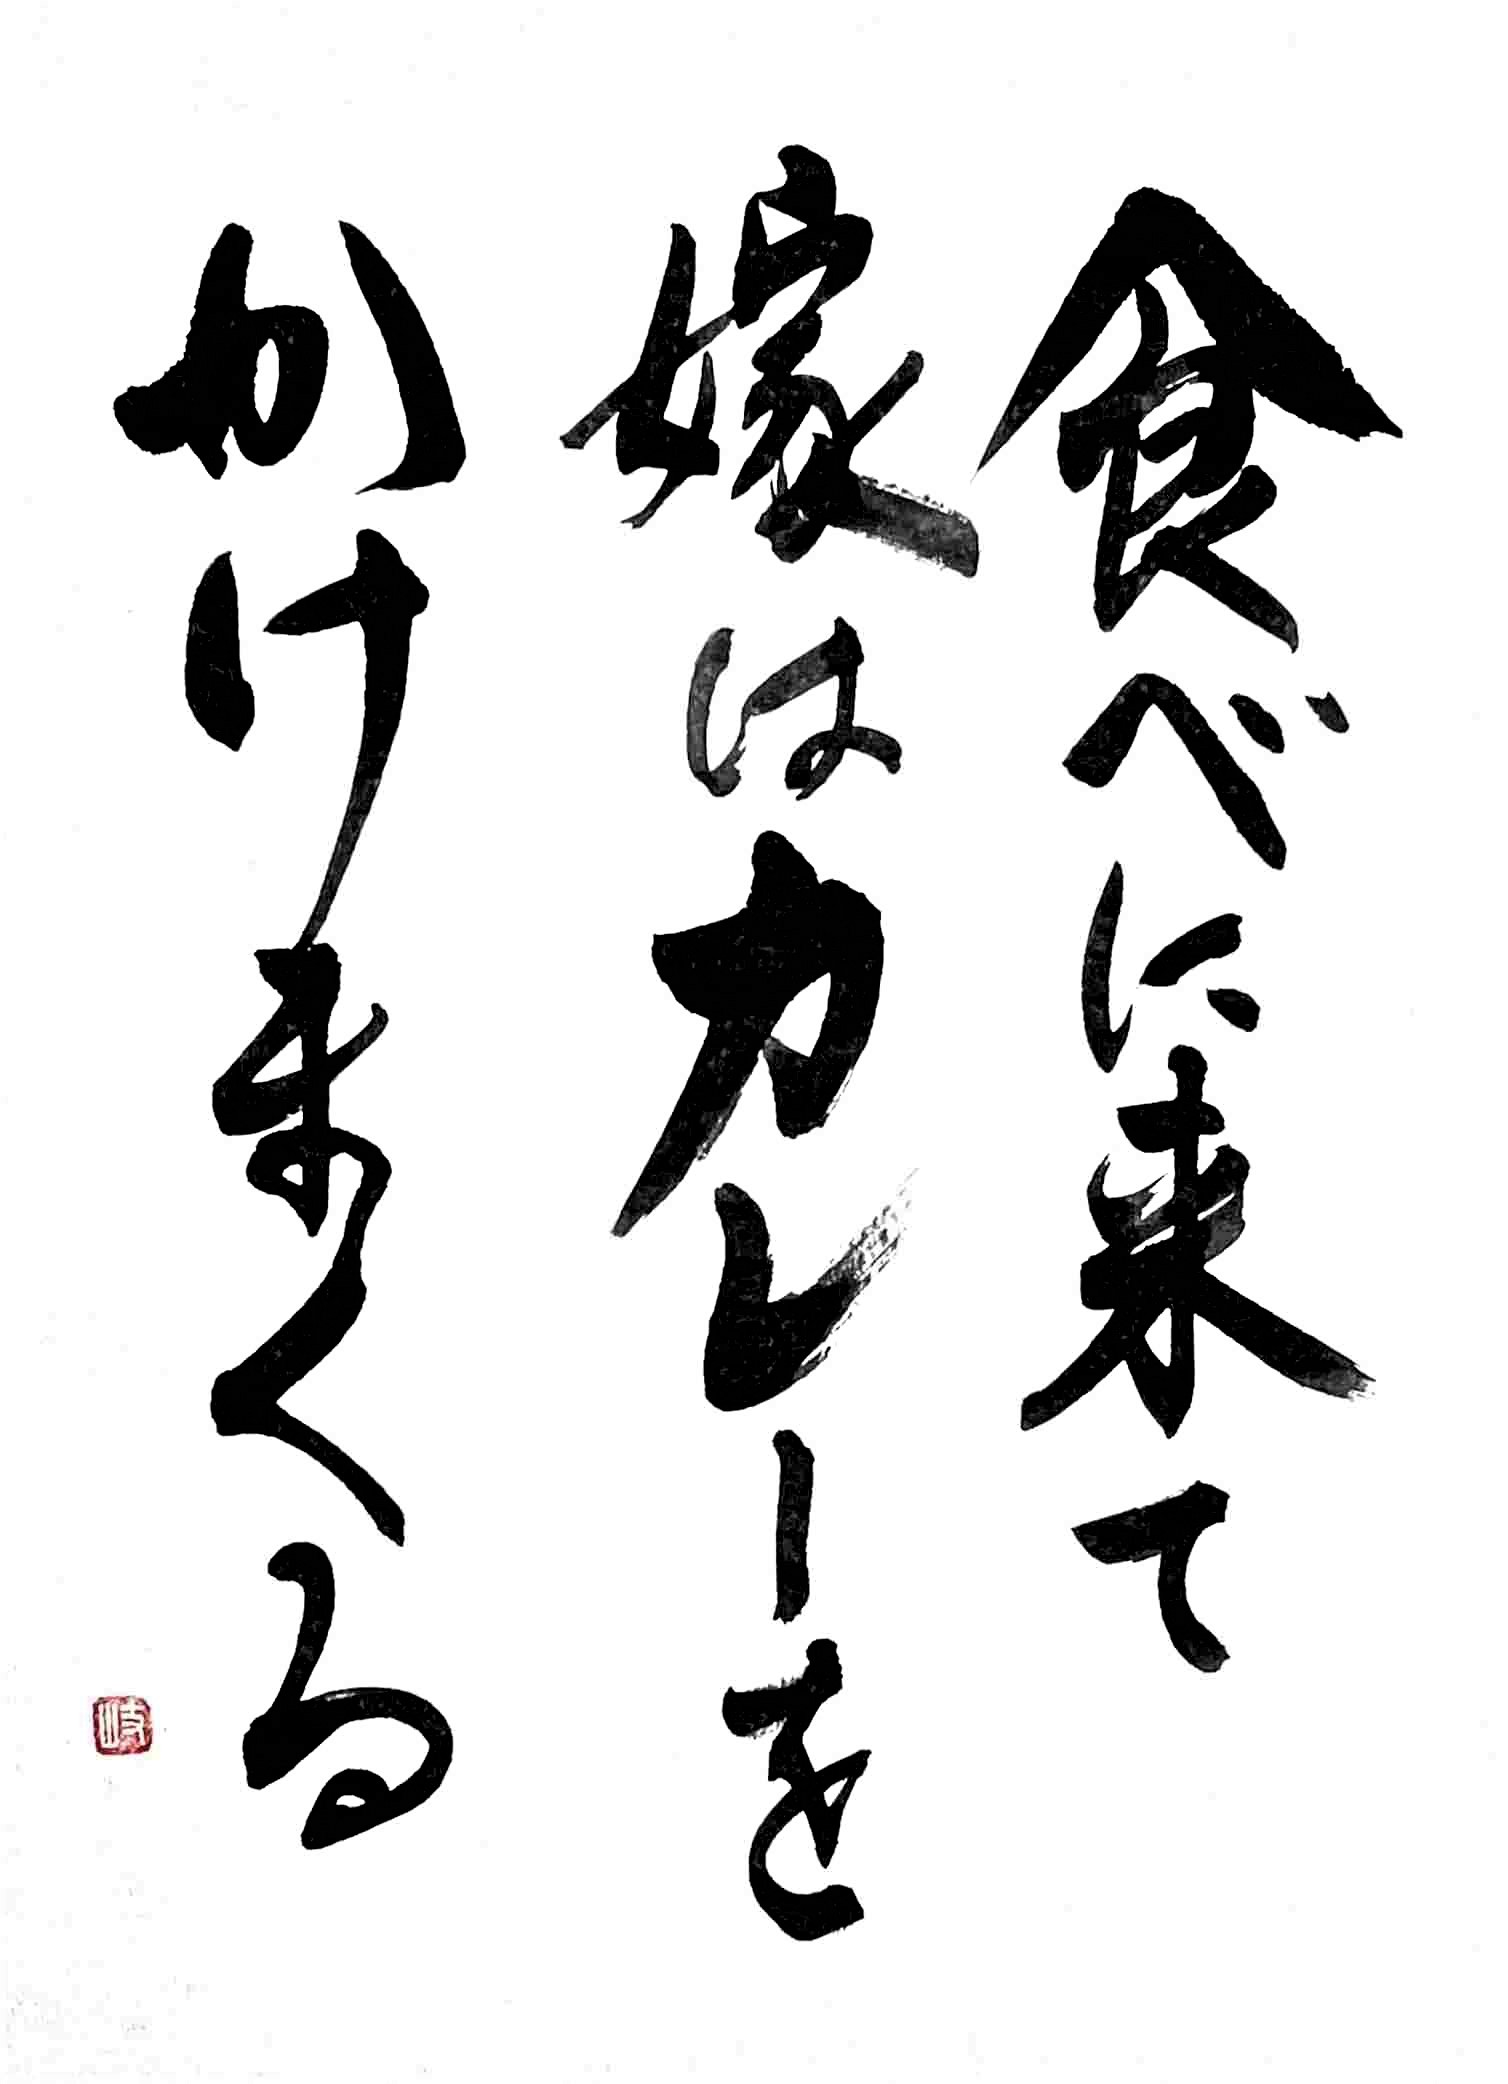 食べに来て
嫁はカレーを
かけまくる
岐